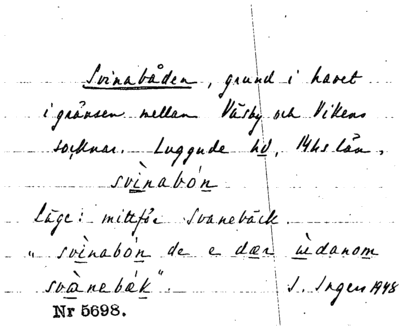 Svinabåden, grund i havet
i gränsen mellan Väsby och Vikens
socknar. Luggude hd, Mhs län.
svìnabón
Läge: mittför Svanebäck.
"svìnabón de e dær ùdanom
svànebǽk". I. Ingers 1948
Nr 5698.